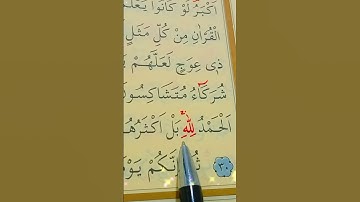 اَكْبَرُ لَوْ كَانُوا يَعْلَمُ
الْقُرْاٰنِ مِنْ كُلِّ مَثَلٍ
ذٖى عِوَجٍ لَعَلَّهُمْ يَ
شُرَكَٓاءُ مُتَشَاكِسُو
اَلْحَمْدُ لِلّٰهِ بَلْ اَكْثَرُهُ
اِنَّكُمْ يَوْمَ
٣٠